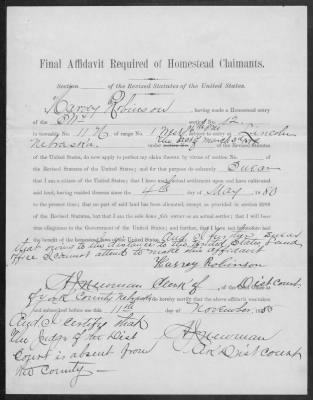 Final Affidavit Required of Homestead Claimants.
Section of the Revised Statutes of the United States.
I, Harvey Robinson having made a Homestead entry
of the section No. 12 in
in township No. 11 N of range No. 1 West subject to entry at Lincoln
Nebraska under section No. of the Revised
Statutes of the United States, do now apply to perfect my claim thereto by virtue of section No.
of the Revised Statutes of the United States; and for that purpose do solemnly Swear
that I am a citizen of the United States; that I have made actual settlement upon and have cultivated
said land, having resided thereon since the 4th day of May, 1880
to the present time; that no part of said land has been alienated, except as provided in section 2288
of the Revised Statutes, but that I am the sole bona fide owner as an actual settler; that I will bear
true allegiance to the Government of the United States; and further, that I have not heretofore
the benefit of the homestead And I further swear
that owing to the distance to the United States Land
office I cannot attend to make this affidavit
Harvey Robinson
I, Newman Clerk of Dist Court
of York County Nebraska do hereby certify that the above affidavit was taken
and subscribed before me this 11th day of November 1880
And I certify that
the Judge of the Dist
Court is absent from
the County
Newman
Clk Dist Court